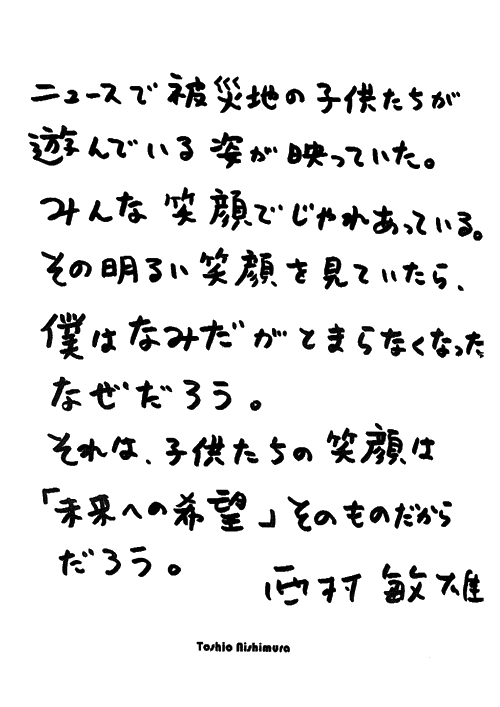 ニュースで被災地の子供たちが
遊んでいる姿が映っていた。
みんな笑顔でじゃれあっている。
その明るい笑顔を見ていたら、
僕はなみだがとまらなくなった
なぜだろう。
それは、子供たちの笑顔は
「未来への希望」そのものだから
だろう。
西村 敏雄
Toshio Nishimura